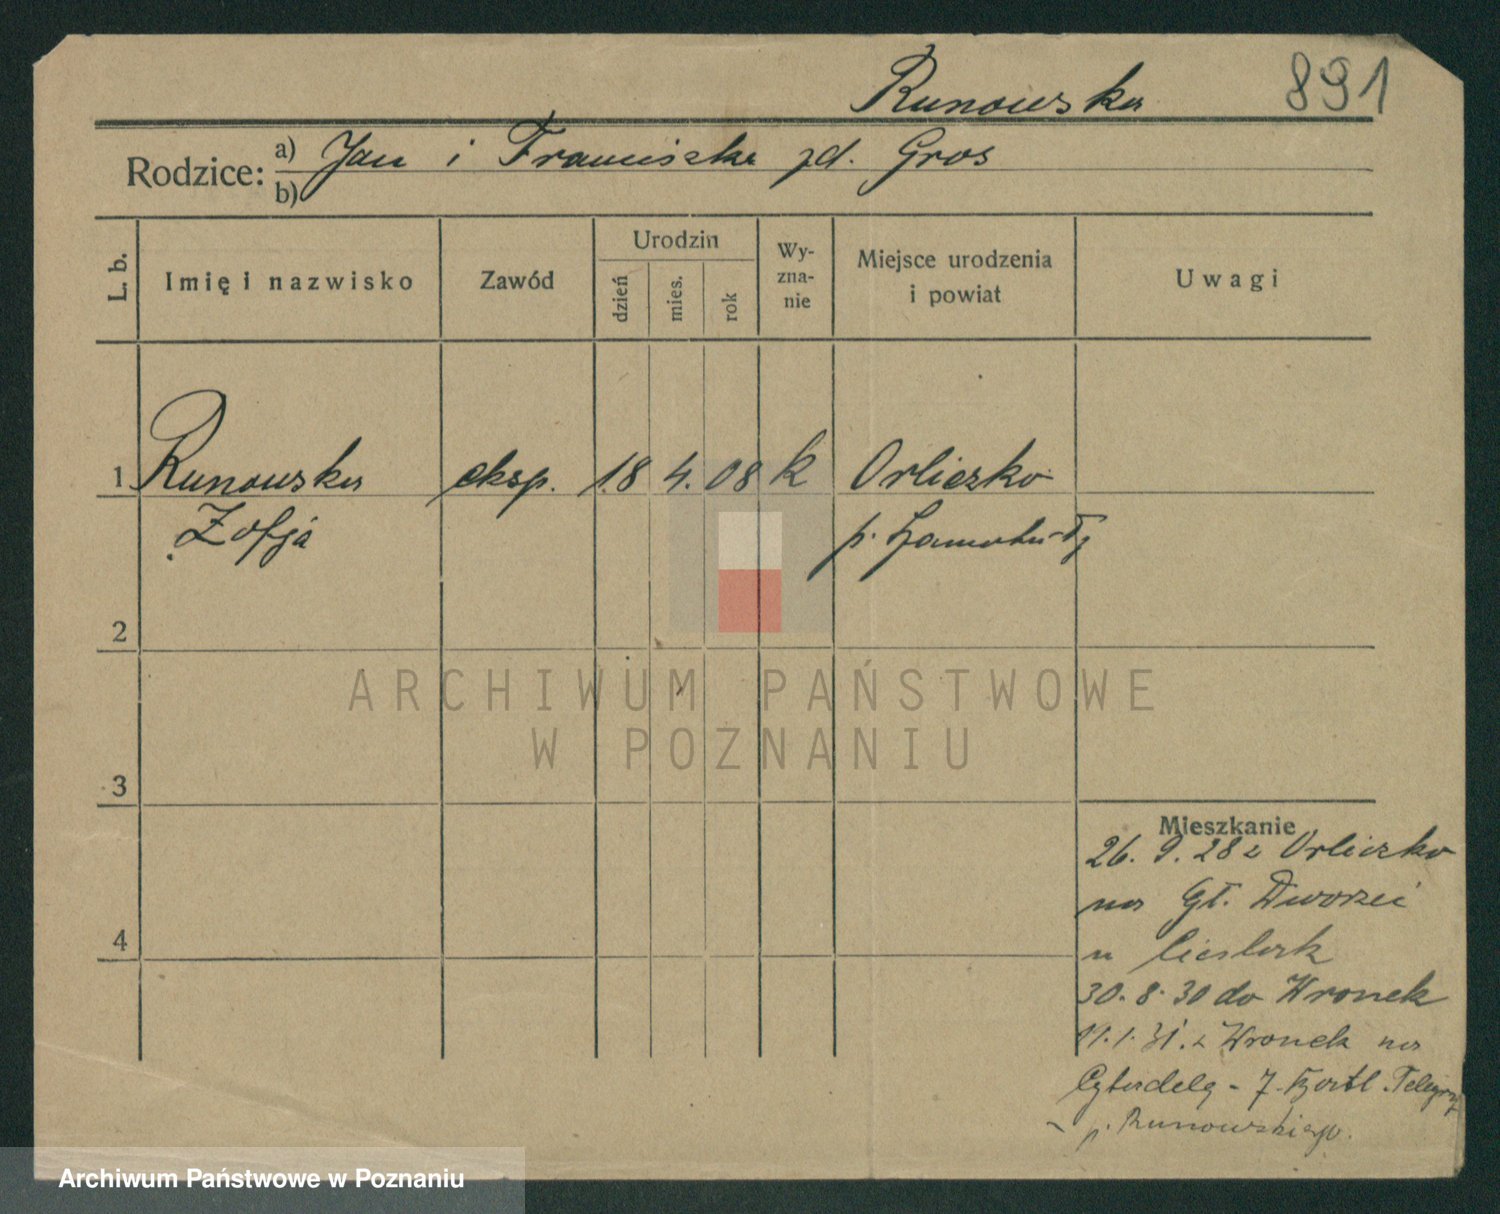 Runowska 891
Rodzice: a) Jan i Franciszka zd. Gros
b)
L. b.
Imię i nazwisko
Zawód
Urodzin
dzień
mies.
rok
Wy-
zna-
nie
Miejsce urodzenia
i powiat
Uwagi
1 Runowska eksp. 18 4. 08 k Orliczko
Zofja p.
2
ARCHIWUM PAŃSTWOWE
W POZNANIU
3
Mieszkanie
26. 9. 28 z Orliczko
na Gł. Dworzec
u Cieslak
4
30. 8. 30 do Wronek
11. 1. 31. z Wronek na
Cytadelę - 7.
p. Runowskiego.
Archiwum Państwowe w Poznaniu